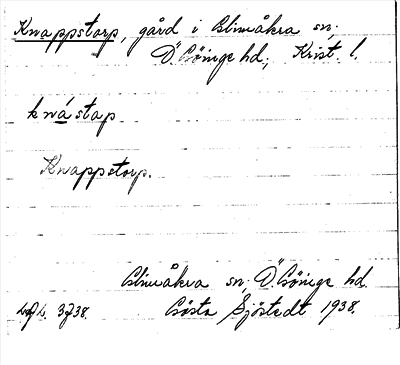 Knappstorp, gård i Glimåkra sn;
Ö. Göinge hd; Krist. l.
knástap
Knappstorp.
Glimåkra sn; Ö. Göinge hd.
3738. Gösta Sjöstedt 1938.